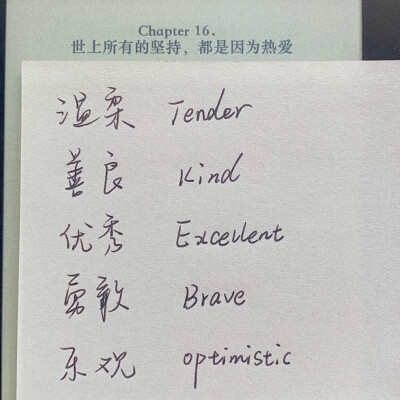 Chapter 16.
世上所有的坚持，都是因为热爱
温柔 Tender
善良 Kind
优秀 Excellent
勇敢 Brave
乐观 optimistic